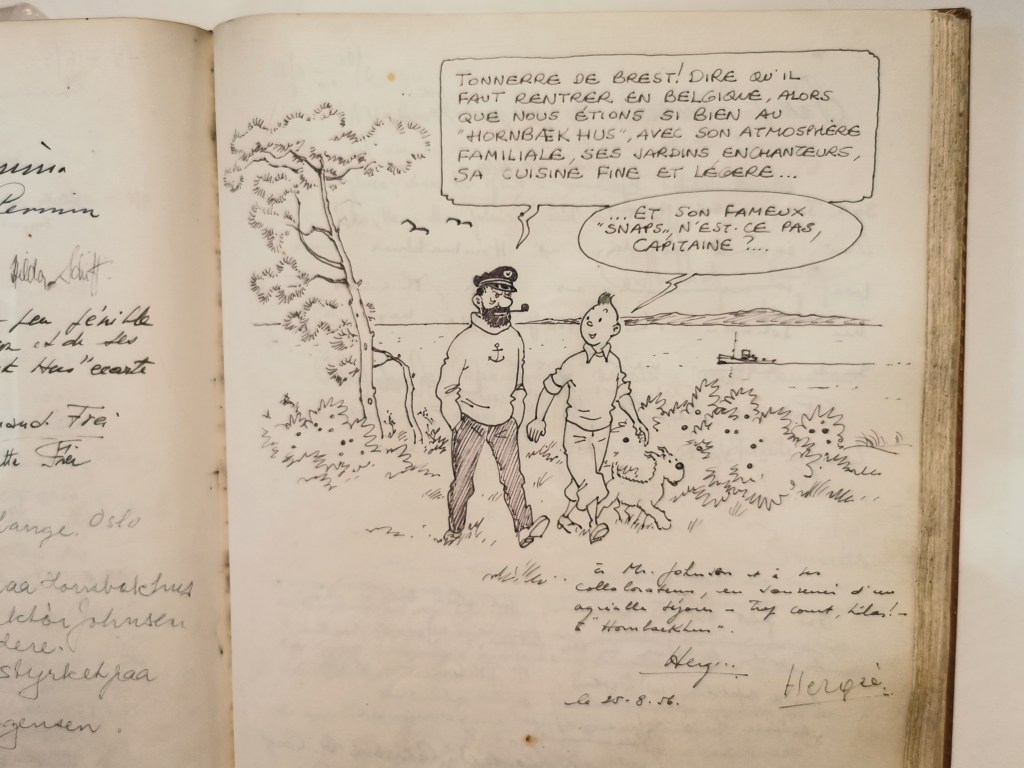 Pernim
Hilda Schiff.
feu, fénille
et de ses
Hus" ecarte
Frei
Frei
lange. Oslo
paa Hornbækhus
Johnsen
dere.
styrket paa
gensen.
TONNERRE DE BREST! DIRE QU'IL
FAUT RENTRER EN BELGIQUE, ALORS
QUE NOUS ÉTIONS SI BIEN AU
"HORNBÆK HUS", AVEC SON ATMOSPHÈRE
FAMILIALE, SES JARDINS ENCHANTEURS,
SA CUISINE FINE ET LÉGÈRE...
... ET SON FAMEUX
"SNAPS", N'EST-CE PAS,
CAPITAINE ?....
à Mr. Johnsen et à ses
collaborateurs, en souvenir d'un
agréable séjour - trop court, hélas! -
à "Hornbaekhus".
Hergé
le 25-8-56.
Hergé